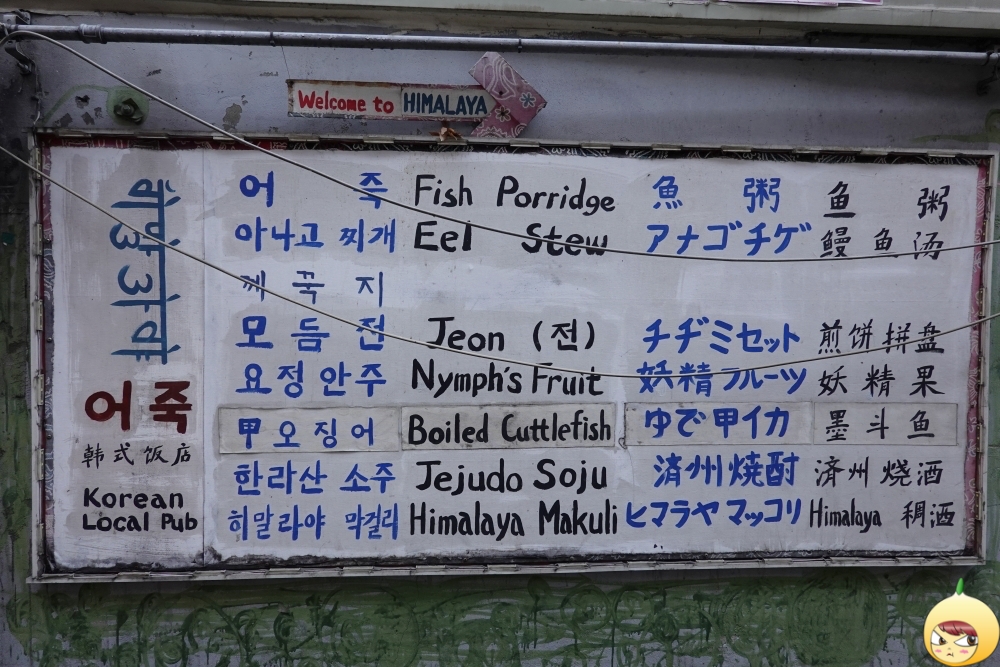 Welcome to HIMALAYA
어죽
韩式饭店
Korean
Local Pub
어 죽 Fish Porridge 魚 粥 鱼 粥
아나고 찌개 Eel Stew アナゴチゲ 鳗 鱼 汤
께 꾹 지
모 듬 전 Jeon (전) チヂミセット 煎饼拼盘
요정 안주 Nymph's Fruit 妖精フルーツ 妖 精 果
甲 오 징 어 Boiled Cuttlefish ゆで甲イカ 墨 斗 鱼
한라산 소주 Jejudo Soju 済州焼酎 済州 烧酒
히말라야 막걸리 Himalaya Makuli ヒマラヤ マッコリ Himalaya 稠酒